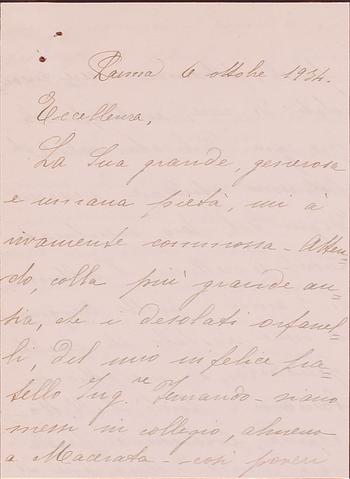 Parma 6 ottobre 1934.
Eccellenza,
La Sua grande, generosa
e umana pietà, mi à
vivamente commossa - Atten=
do, colla più grande an=
sia, che i desolati orfanel=
li, del mio infelice fra=
tello Ing.re Fernando - siano
messi in collegio, almeno
a Macerata - così poveri